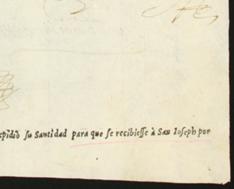 su Santidad para que se recibiesse à San Ioseph por